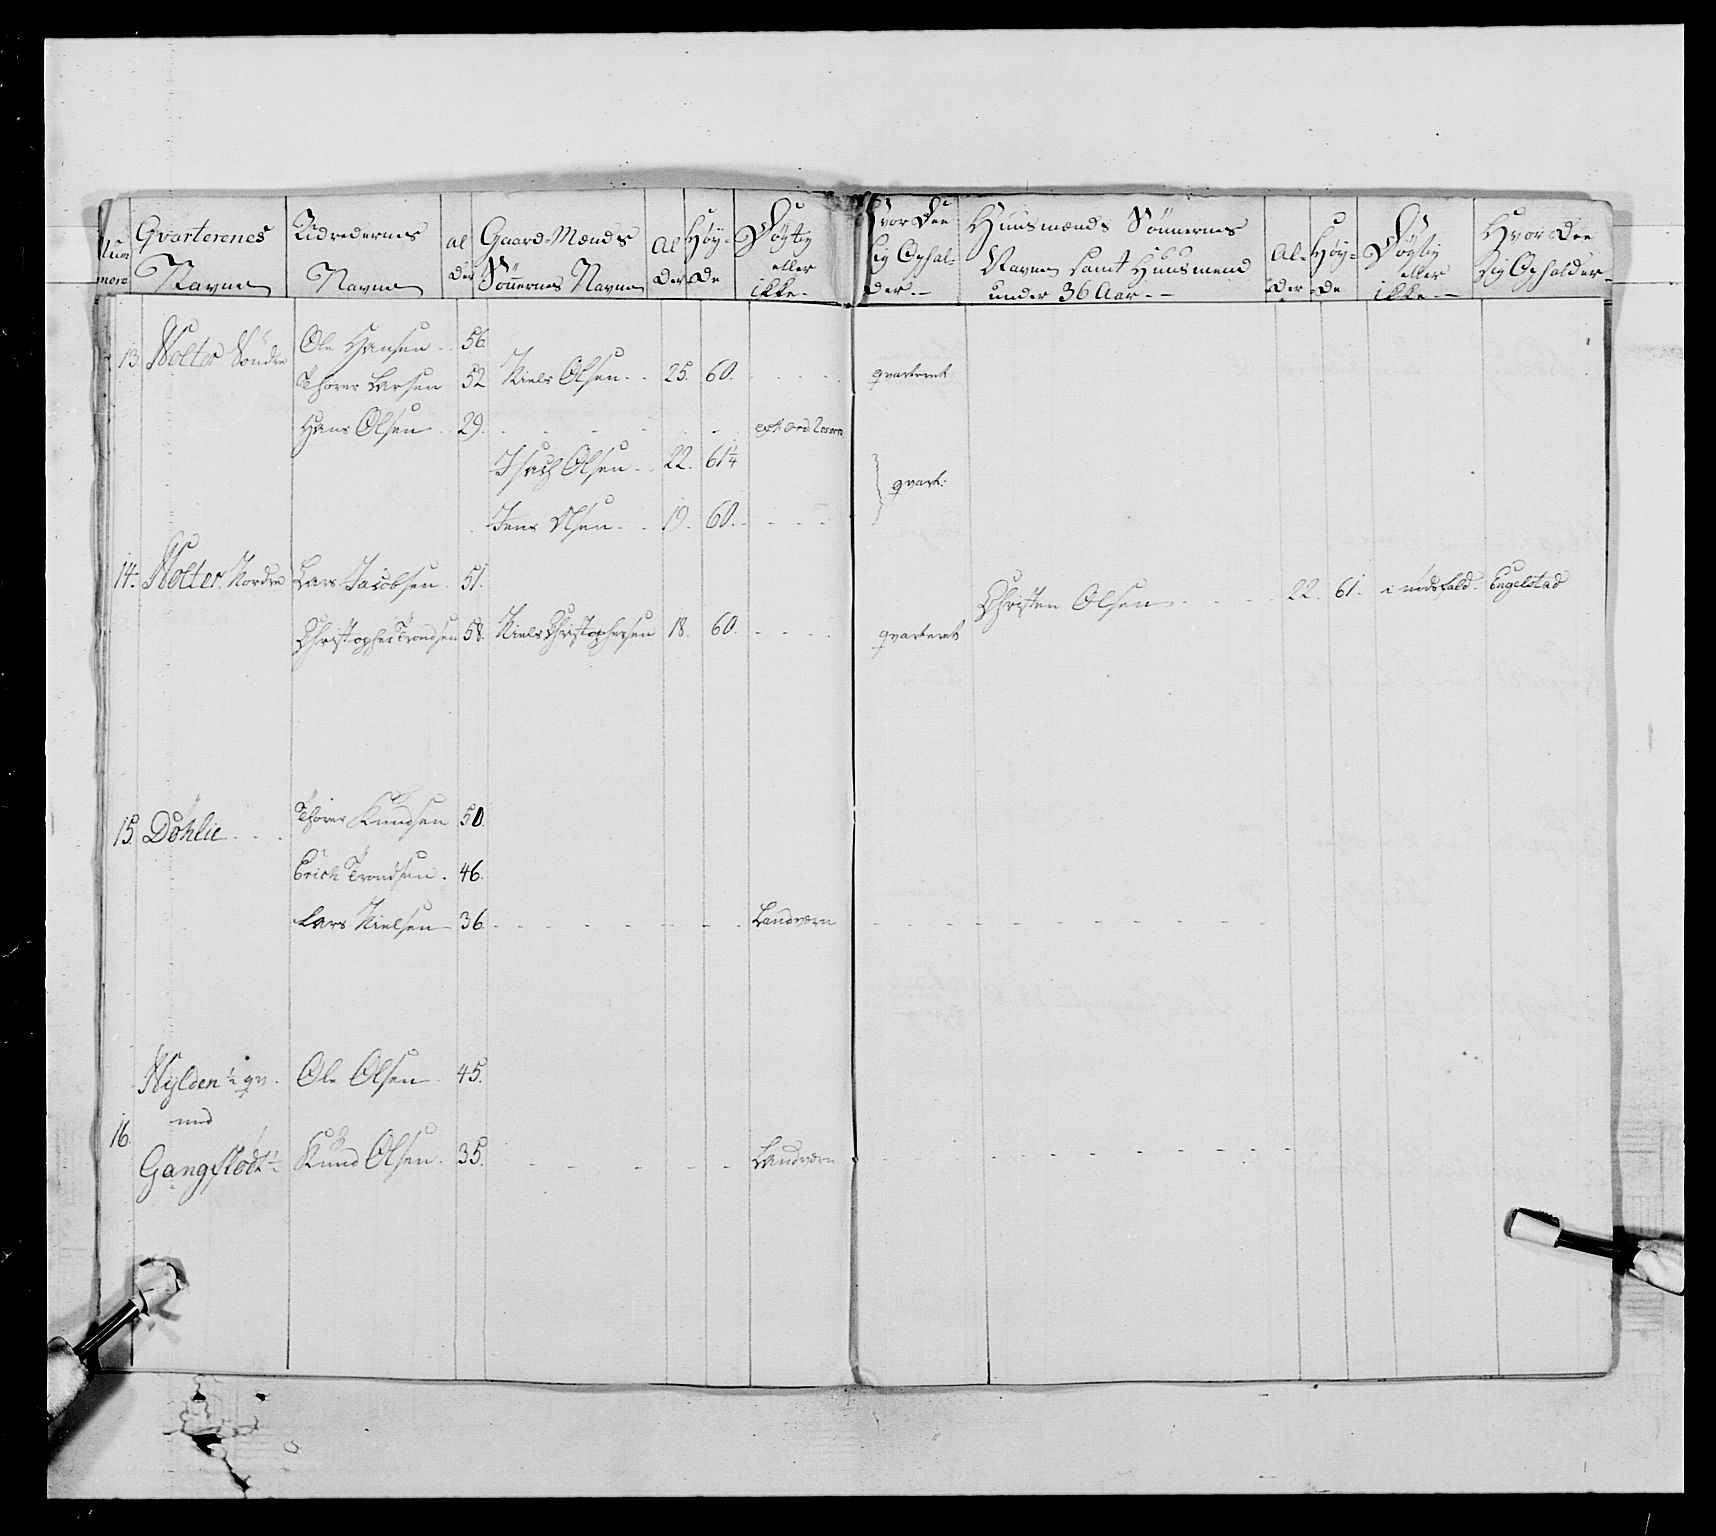 Num
mere
Qvarterenes
Navne
Navne
al
der
Gaard-Mænds
Sönnernes Navne
Al
der
Høy-
de
Døgtig
eller
ikke.
Hvor Dee
sig Ophol-
der.
Huusmænds Sönnernes
Navne samt Huusmend
under 36 Aar.
Al-
der
Høy-
de
Døgtig
eller
ikke
Hvor dee
sig Opholder
13. Holter Söndre Ole Hansen 56.
Thorer Larsen 52 Niels Olsen 25. 60. qvarteret
Hans Olsen 29.
Isach Olsen 22. 61¼ qvart:
Jens Olsen 19. 60.
14. Holter Nordre Lars Jacobsen 51. Christen Olsen 22. 61. Engelstad
Christopher Trondsen 58. Niels Christophersen 18. 60. qvarteret
15. Döhlie Thorer Knudsen 50.
Erich Trondsen 46.
Lars Nielsen 36. Landværn
Hylden ½ qv. Ole Olsen 45.
med
16.
Gangflödt ½ Knud Olsen 35. Landværn